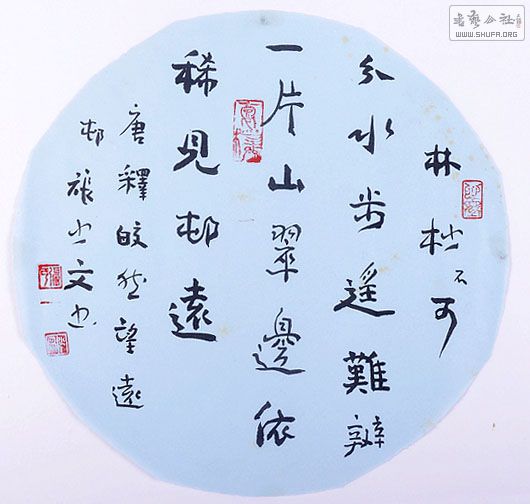 林杪不可
分水步遥難辨
一片山翠邊依
稀見邨遠
唐釋皎然望遠
邨 少文书
書藝公社
WWW.SHUFA.ORG